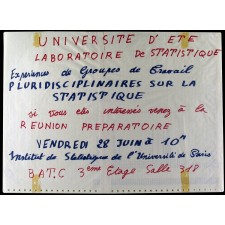 UNIVERSITE D'ETE
LABORATOIRE De STATISTIQUE
Experiences de Groupes de Travail
PLURIDISCIPLINAIRES SUR LA
STATISTIQUE
si vous etes interessés venez à la
REUNION PREPARATOIRE
VENDREDI 28 JUIN à 10H
Institut de Statistique de l'Université de Paris
BAT.C 3eme Etage Salle 318